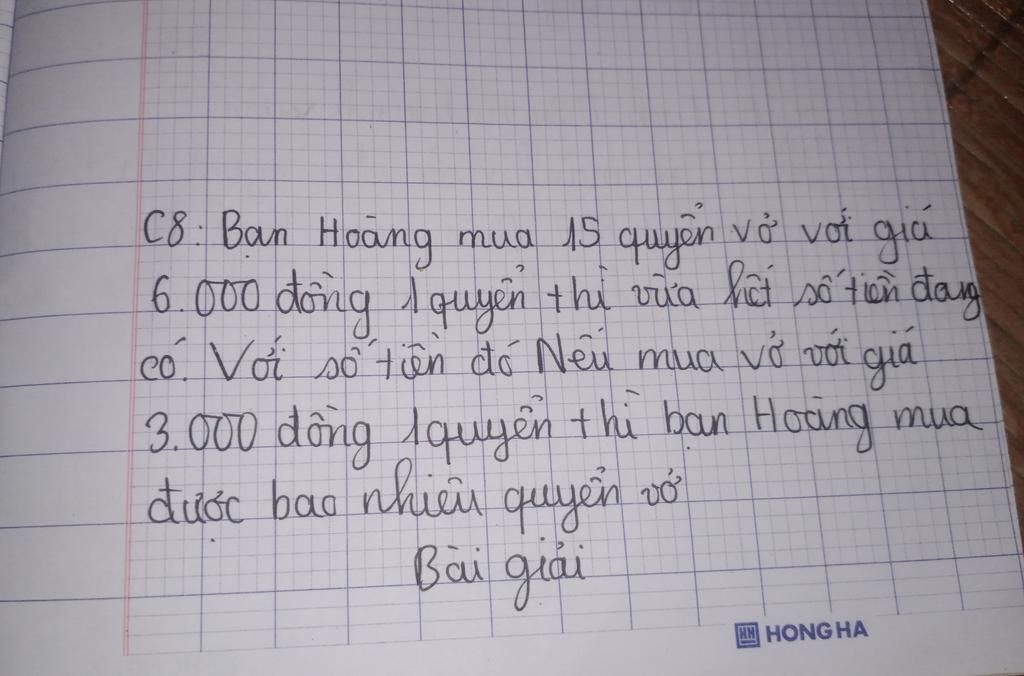 C8: Bạn Hoàng mua 15 quyển vở với giá
6.000 đồng 1 quyển thì vừa hết số tiền đang
có. Với số tiền đó Nếu mua vở với giá
3.000 đồng 1 quyển thì bạn Hoàng mua
được bao nhiêu quyển vở
Bài giải
HH HONG HA